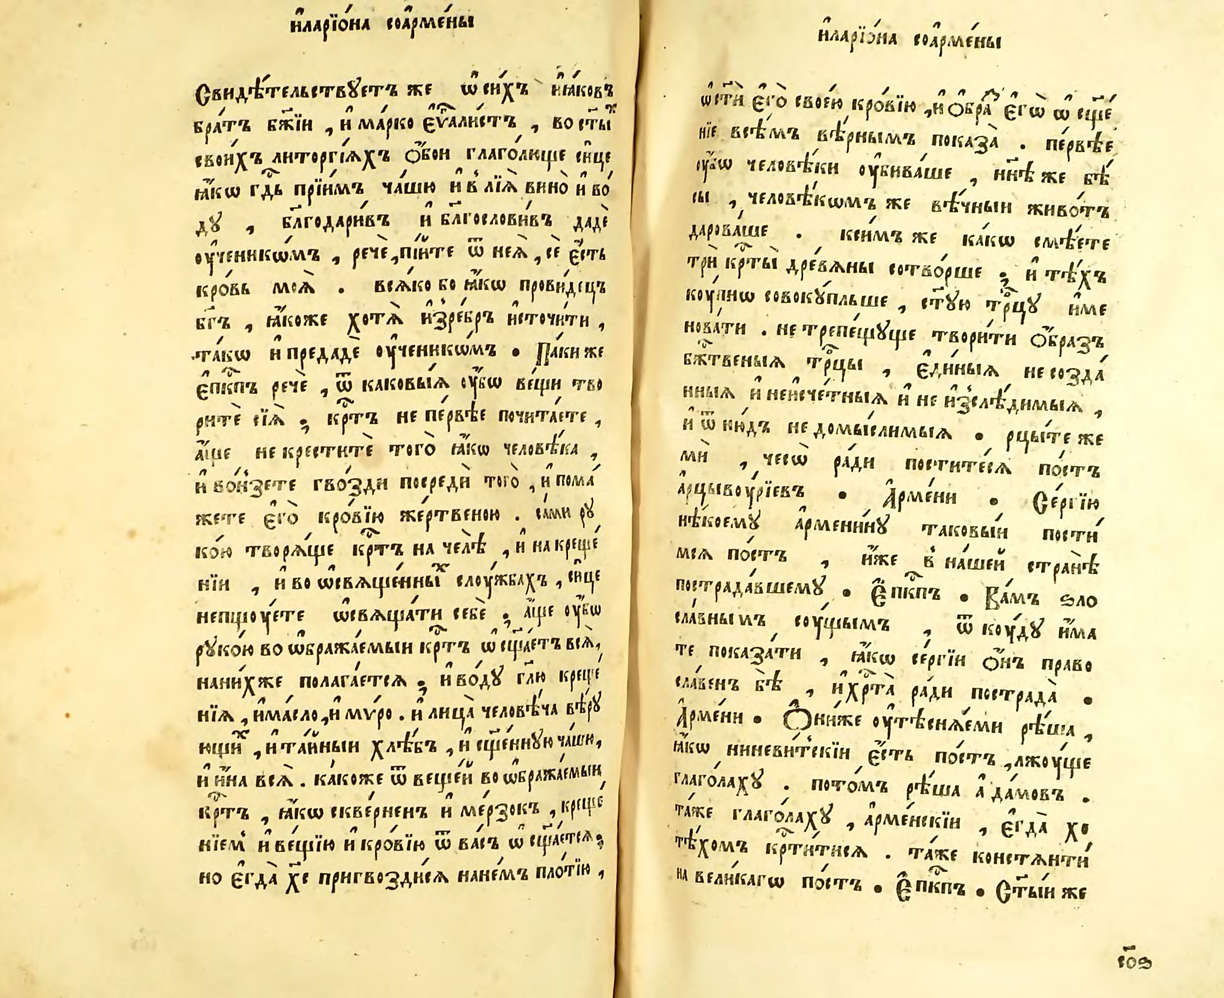 и҆ларїо́на соа҆рме́ны
Свидѣ́тельствꙋетъ же ѡ҆ си́хъ и҆ꙗ҆́ковъ
бра́тъ бж҃їи , и҆ ма́рко є҆ѵⷢ҇али́стъ , во ст҃ы́ⷯ
свои́хъ литоргі́ѧхъ ѻ҆́бои глаго́люще си́це
ꙗ҆́кѡ гдⷭ҇ь прїи́мъ ча́шю и҆ влїѧ̀ вино̀ и҆ во́
дꙋ , бл҃годари́въ и҆ бл҃гослови́въ дадѐ
оу҆ченикѡ́мъ , речѐ , пі́йте ѿ неѧ̀ , сѐ є҆́сть
кро́вь моѧ̀ . всѧ́ко бо ꙗ҆́кѡ прови́децъ
бг҃ъ , ꙗ҆́коже хотѧ̀ и҆зре́бръ и҆сточи́ти ,
та́кѡ и҆ предадѐ оу҆ченикѡ́мъ . Па́ки же
є҆пⷭ҇кпъ речѐ , ѿ каковы́ѧ оу҆́бѡ ве́щи тво
ритѐ сїѧ̀ ; крⷭ҇тъ не пе́рвѣе почита́ете ,
а҆́ще не креститѐ того̀ ꙗ҆́кѡ человѣ́ка ,
и҆ во́нзете гво́зди посредѝ того̀ , и҆ пома́
жете є҆го̀ кро́вїю же́ртвеною . са́ми рꙋ
ко́ю творѧ́ще крⷭ҇тъ на челѣ̀ , и҆ на креще́
нїи , и҆ во ѡ҆свѧще́нныⷯ слоу́жбахъ , си́це
непщоу́ете ѡ҆свѧща́ти себѐ ; а҆́ще оу҆́бѡ
рꙋко́ю во ѡ҆бража́емыи крⷭ҇тъ ѡ҆сщ҃а́етъ всѧ̀ ,
нани́хже полага́етсѧ ; и҆ во́дꙋ гл҃ю креще́
нїѧ , и҆ ма́сло , и҆ мѵ́ро . и҆ лица̀ человѣ́ча вѣ́рꙋ
ющиⷯ , и҆ та́йныи хлѣ́бъ , и҆ сщ҃е́ннꙋю ча́шꙋ ,
и҆ и҆́на всѧ̀ . ка́коже ѿ веще́й во ѡ҆бража́емыи
крⷭ҇тъ , ꙗ҆́кѡ скве́рненъ и҆ ме́рзокъ , креще́
нїемъ и҆ ве́щїю и҆ кро́вїю ѿ ва́съ ѡ҆сщ҃а́етсѧ ;
но є҆гда̀ хⷭ҇е пригвозди́сѧ нане́мъ пло́тїю ,
и҆ларїо́на соа҆рме́ны
ѡ҆стѝ є҆го̀ свое́ю кро́вїю , и҆ ѻ҆́браⷥ є҆гѡ̀ ѡ҆ сщ҃е́
нїе всѣ́мъ вѣ́рнымъ показа̀ . пе́рвѣе
оу҆́бѡ человѣ́ки оу҆бива́ше , нн҃ѣ же бѣ́
сы , человѣ́кѡмъ же вѣ́чныи живо́тъ
дарова́ше . ксимъ же ка́кѡ смѣ́ете
трѝ крⷭ҇ты̀ дре́вѧны сотво́рше ; и҆ тѣ́хъ
коу́пнѡ совокꙋ́пльше , ст҃ꙋ́ю трⷪ҇цꙋ и҆ме
нова́ти . не трепе́щꙋще твори́ти ѻ҆́бразъ
бжⷭ҇твеныѧ трⷪ҇цы , є҆ди́ныѧ не созда́
нныѧ и҆ неисче́тныѧ и҆ не и҆зслѣ́димыѧ ,
и҆ ѿ ню́дъ не домы́слимыѧ . рцы́те же
мѝ , чесѡ̀ ра́ди пости́тесѧ по́стъ
а҆рцывоу́рїевъ . А҆рме́ни . Се́ргїю
нѣ́коемꙋ а҆рмени́нꙋ таковы́и пости́
мсѧ по́стъ , и҆́же в на́шей странѣ̀
пострада́вшемꙋ . Є҆пⷭ҇кпъ . Ва́мъ ѕло
сла́внымъ соу́щымъ , ѿ коу́дꙋ и҆́ма
те показа́ти , ꙗ҆́кѡ се́ргїи ѻ҆́нъ право
сла́венъ бѣ̀ , и҆ хрⷭ҇та̀ ра́ди пострада̀ .
А҆рме́ни . Ѻ҆ни́же оу҆тѣснѧ́еми рѣ́ша ,
ꙗ҆́кѡ ниневи́тскїи є҆́сть по́стъ , лжоу́ще
глаго́лахꙋ . пото́мъ рѣ́ша а҆да́мовъ .
та́же глаго́лахꙋ , а҆рме́нскїи , є҆гда̀ хо
тѣ́хомъ крⷭ҇ти́тисѧ . та́же констѧнти́
на вели́кагѡ по́стъ . Є҆пⷭ҇кпъ . Ст҃ы́и же